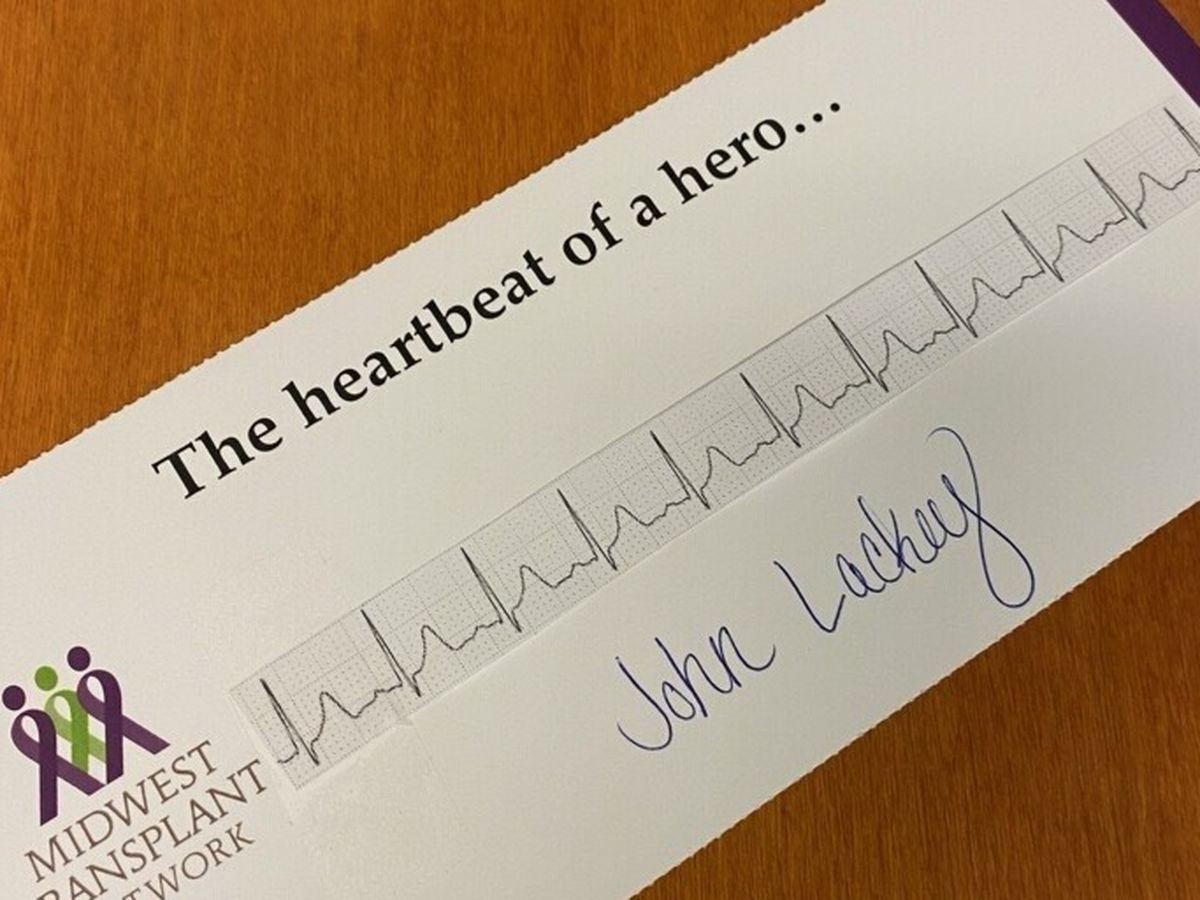 The heartbeat of a hero...
John Lackey
MIDWEST
RANSPLANT
TWORK